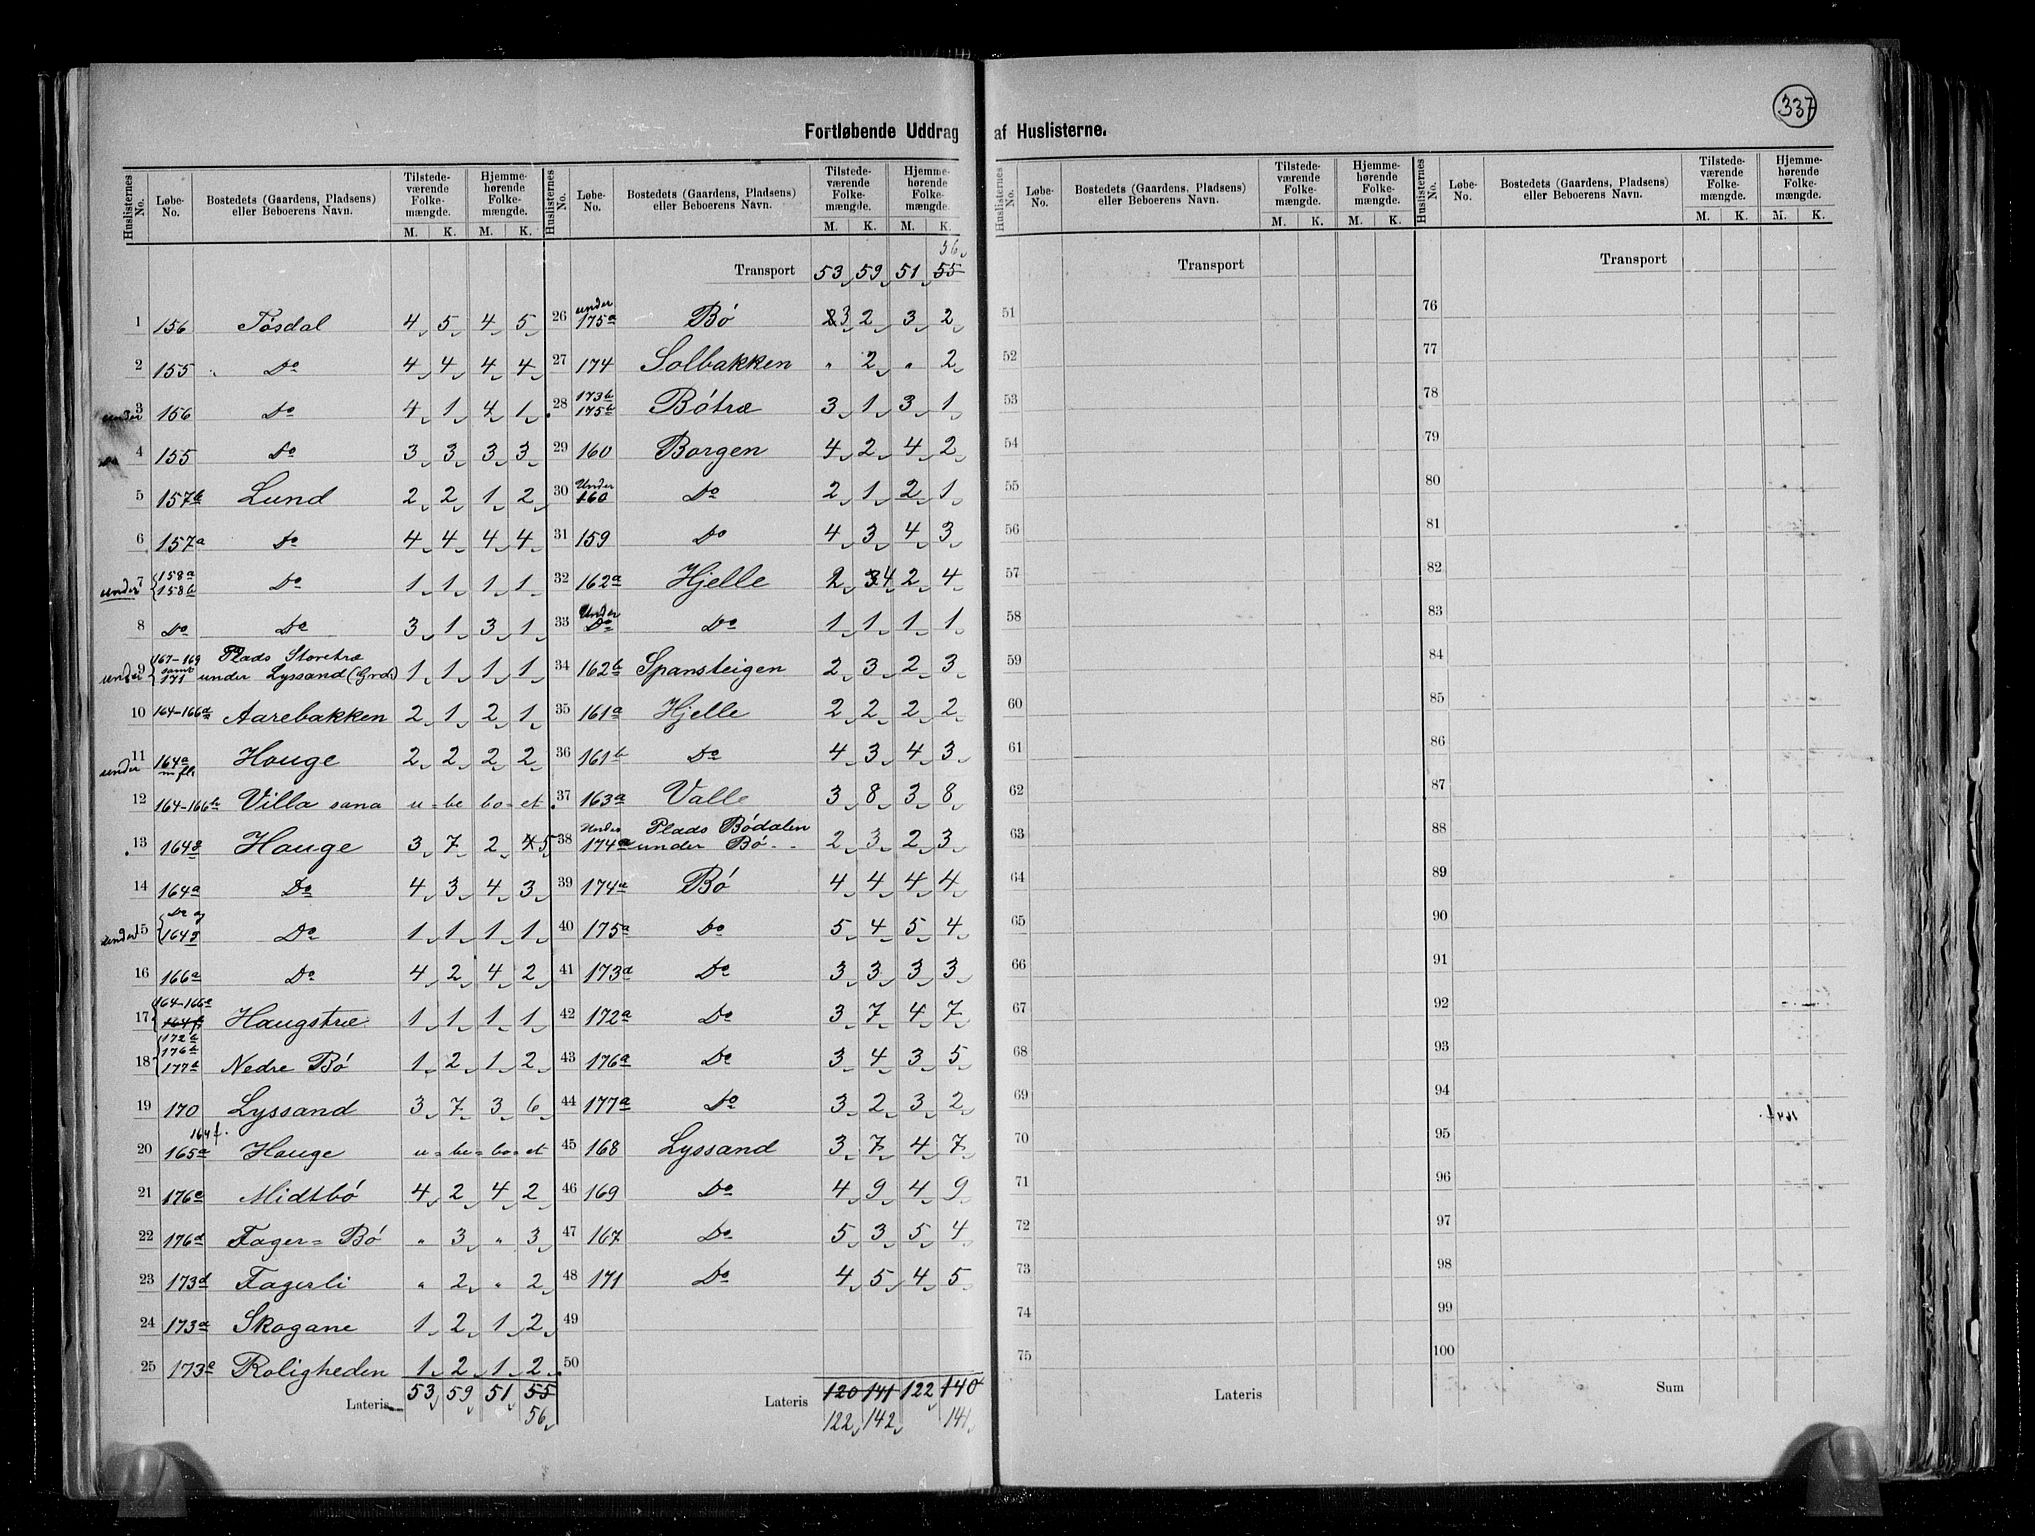 337
Fortløbende Uddrag af Huslisterne.
Huslisternes No. Løbe-No. Bostedets (Gaardens, Pladsens) eller Beboerens Navn. Tilstedeværende Folkemængde. M. K. Hjemmehørende Folkemængde. M. K.
1 156 Tøsdal 4 5 4 5
2 155 Do 4 4 4 4
under 3 156 Do 4 1 4 1
Do 4 155 Do 3 3 3 3
5 157b Lund 2 2 1 2
6 157a Do 4 4 4 4
under 7 158a 158b Do 1 1 1 1
8 Do Do 3 1 3 1
under 9 167-169 samt 171 Plads Storetræ under Lyssand (Grd.) 1 1 1 1
10 164-166a Aarebakken 2 1 2 1
under 11 164a m fl. Houge 2 2 2 2
12 164-166b Villa sana u=be bo=et
13 164g Houge 3 7 2 4 5
14 164a Do 4 3 4 3
under 15 Do og 164g Do 1 1 1 1
16 166a Do 4 2 4 2
17 164-166a 164f Haugstræ 1 1 1 1
18 172b 176b 177b Nedre Bø 1 2 1 2
19 170 Lyssand 3 7 3 6
164f.
20 165a Houge u=be=bo=et
21 176c Midtbø 4 2 4 2
22 176d Fager=Bø " 3 " 3
23 173d Fagerli " 2 " 2
24 173a Skogane 1 2 1 2
25 173a Roligheden 1 2 1 2
Lateris 53 59 51 55
56
Huslisternes No. Løbe-No. Bostedets (Gaardens, Pladsens) eller Beboerens Navn. Tilstedeværende Folkemængde. M. K. Hjemmehørende Folkemængde. M. K.
56
Transport 53 59 51 55
26 under 175a Bø 2 3 2 3 2
27 174 Solbakken " 2 " 2
28 173b 175b Bøtræ 3 1 3 1
29 160 Borgen 4 2 4 2
30 Under 160 Do 2 1 2 1
31 159 Do 4 3 4 3
32 162a Hjelle 2 3 4 2 4
33 Under Do Do 1 1 1 1
34 162b Spansteigen 2 3 2 3
35 161a Hjelle 2 2 2 2
36 161b Do 4 3 4 3
37 163a Valle 3 8 3 8
38 Under 174a Plads Bødalen under Bø 2 3 2 3
39 174a Bø 4 4 4 4
40 175a Do 5 4 5 4
41 173a Do 3 3 3 3
42 172a Do 3 7 4 7
43 176a Do 3 4 3 5
44 177a Do 3 2 3 2
45 168 Lyssand 3 7 4 7
46 169 Do 4 9 4 9
47 167 Do 5 3 5 4
48 171 Do 4 5 4 5
49
50
Lateris 120 141 122 140
122 142 141
Huslisternes No. Løbe-No. Bostedets (Gaardens, Pladsens) eller Beboerens Navn. Tilstedeværende Folkemængde. M. K. Hjemmehørende Folkemængde. M. K.
Transport
51
52
53
54
55
56
57
58
59
60
61
62
63
64
65
66
67
68
69
70
71
72
73
74
75
Lateris
Huslisternes No. Løbe-No. Bostedets (Gaardens, Pladsens) eller Beboerens Navn. Tilstedeværende Folkemængde. M. K. Hjemmehørende Folkemængde. M. K.
Transport
76
77
78
79
80
81
82
83
84
85
86
87
88
89
90
91
92
93
94
95
96
97
98
99
100
Sum